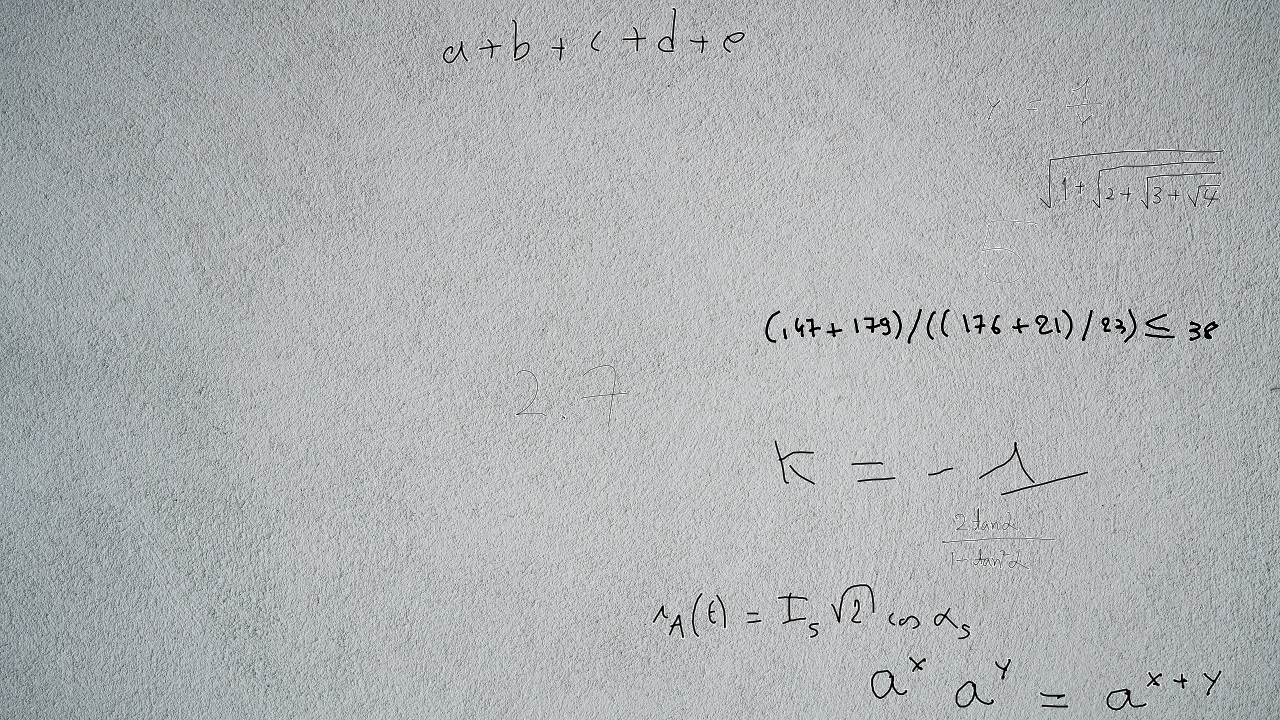 a + b + c + d + e
Y = 1/Y
√(1 + √(2 + √(3 + √4)))
(147 + 179) / ((176 + 21) / 23) ≤ 38
2.7
K = - 1
2 tan α / 1 - tan² α
i_A(t) = I_s √2 cos α_s
a^x a^y = a^{x + y}